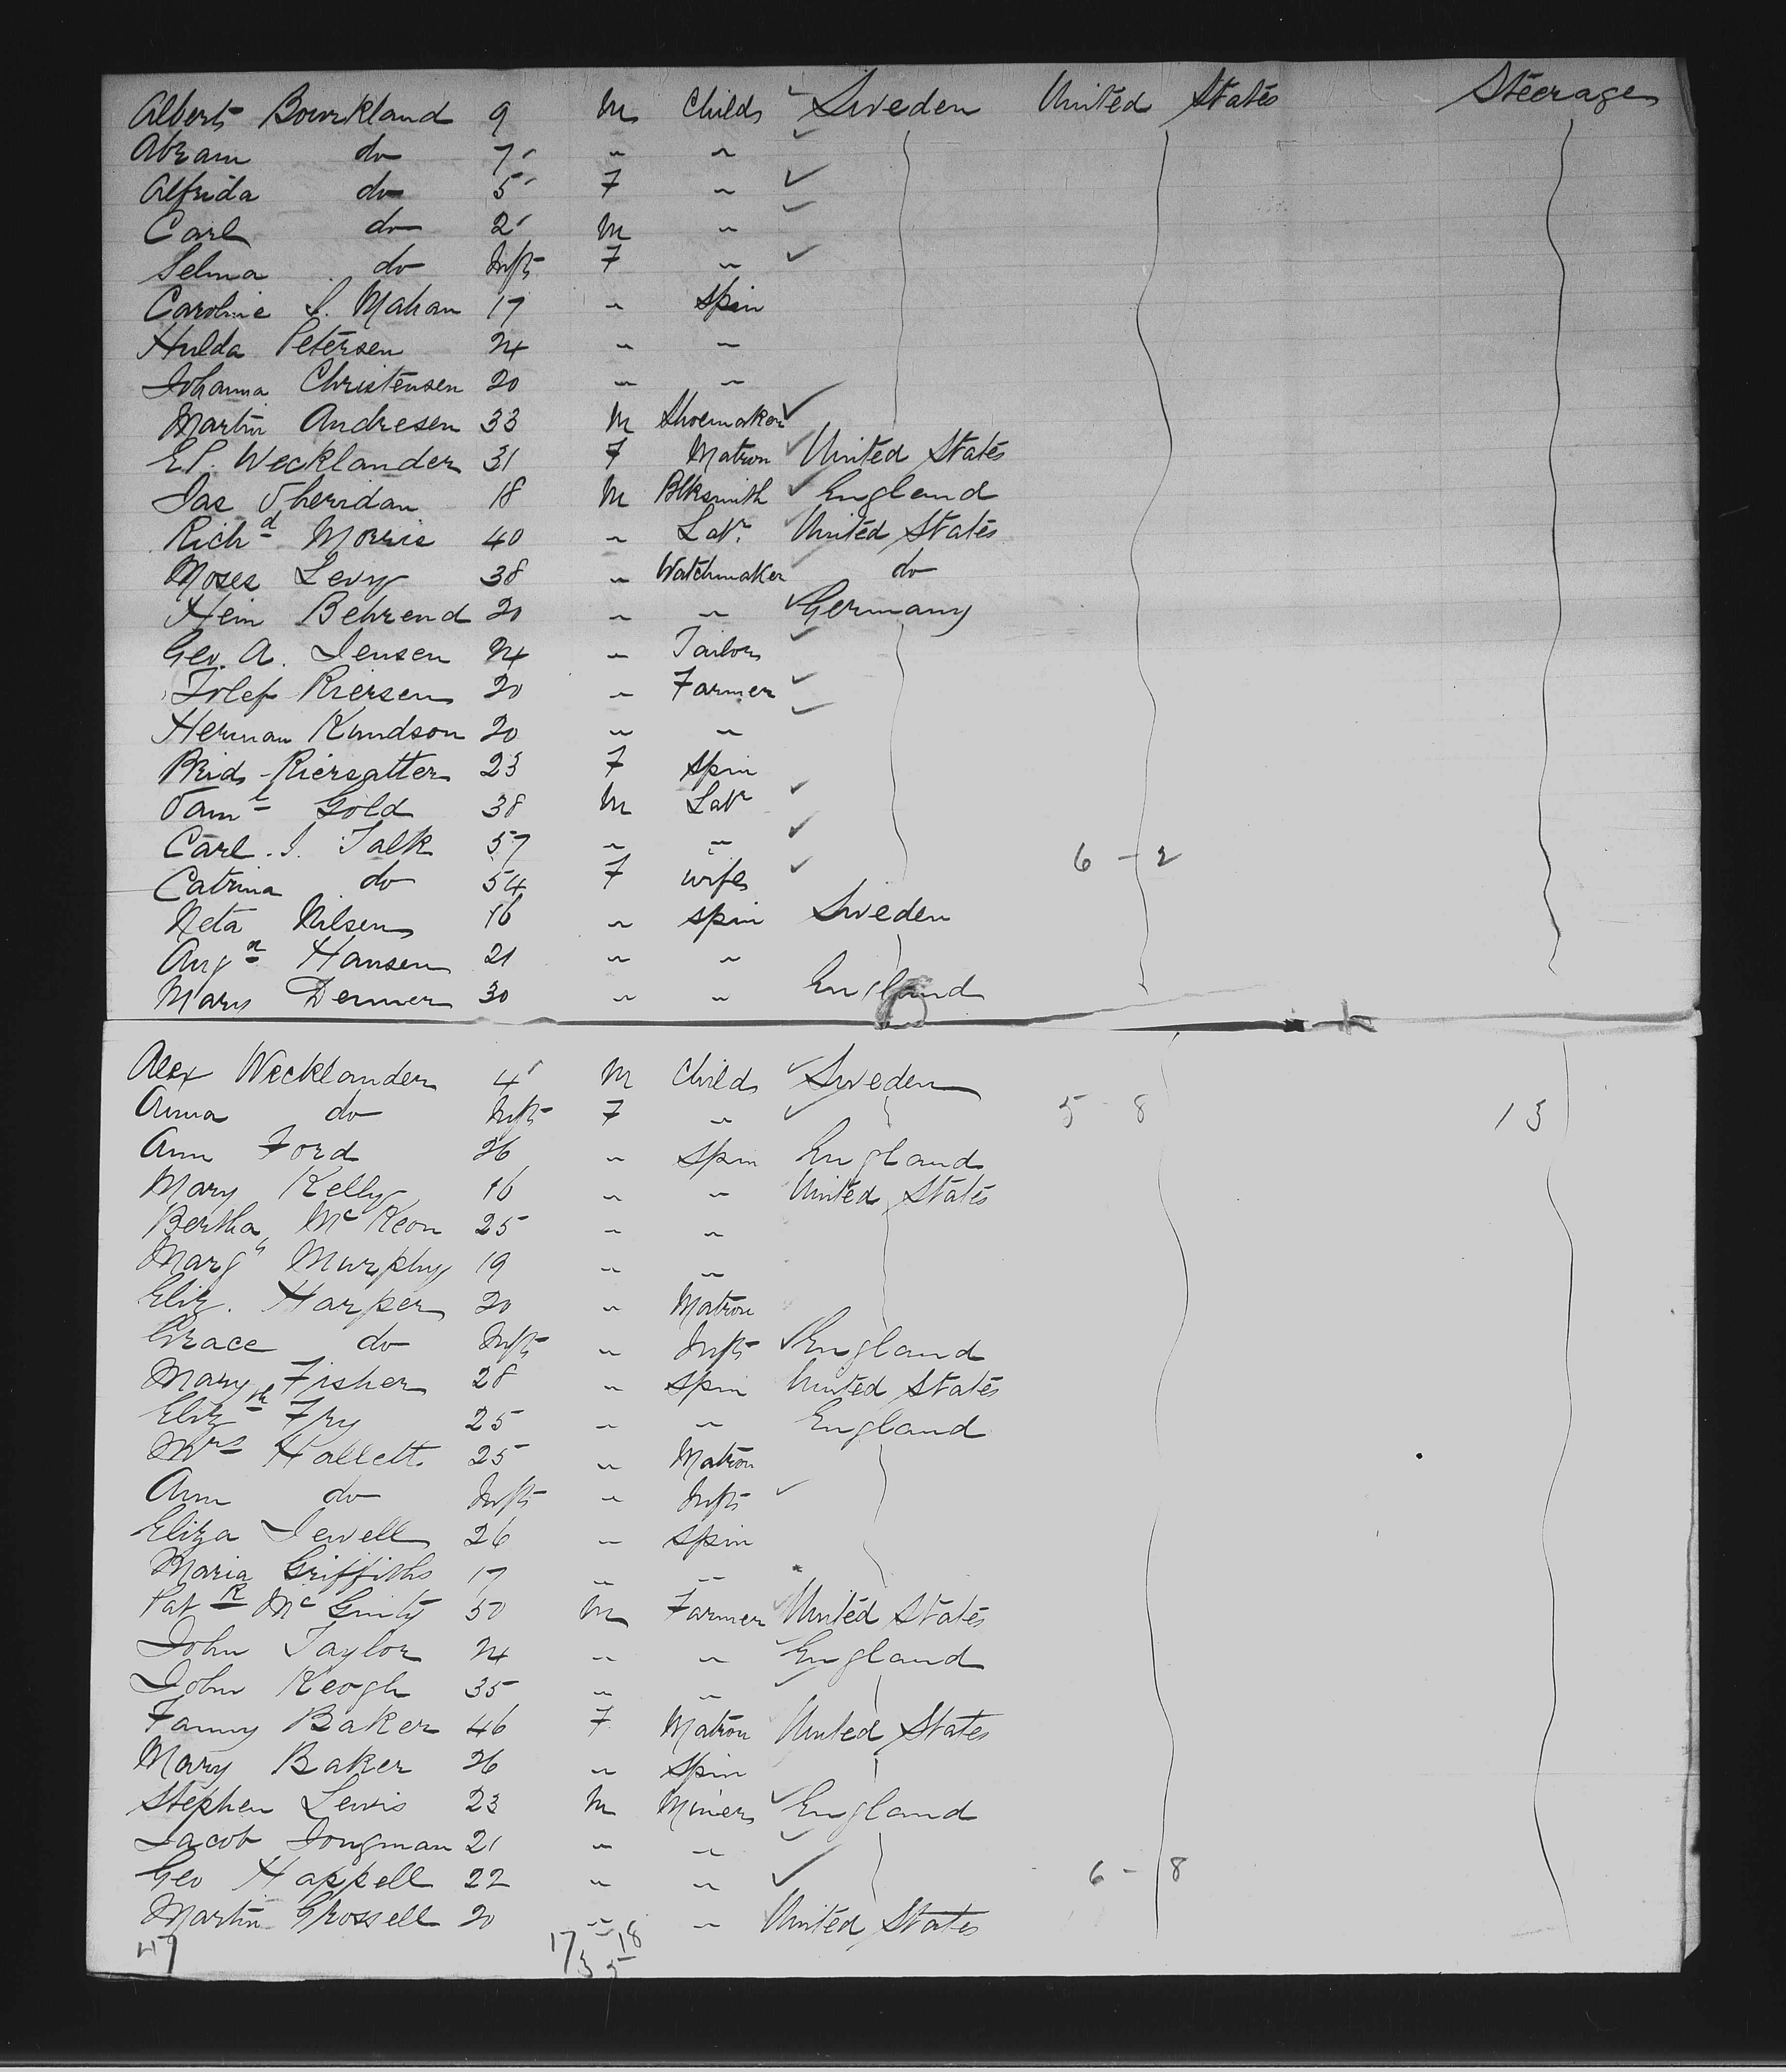 Albert Bowkland 9 M Child Sweden United States Steerage
Abram do 7 " "
Alfrida do 5 F "
Carl do 2 M "
Selma do Inft F "
Caroline S. Mahan 17 " Spin
Hulda Petersen 24 " "
Johanna Christensen 20 " "
Martin Andresen 33 M Shoemaker
E P. Wecklander 31 F Matron United States
Jas Sheridan 18 M Blksmith England
Richd Morris 40 " Labr United States
Moses Levy 38 " Watchmaker do
Hein Behrend 20 " " Germany
Geo. A. Jensen 24 " Tailor
Tolef Riersen 20 " Farmer
Herman Knudson 20 " "
Riersatter 23 F Spin
Saml Gold 38 M Labr
Carl. J. Talk 57 " " 6 - 2
Catrina do 54 F wife
Neta Nilsen 16 " spin Sweden
Augn Hansen 21 " "
Mary Denner 30 " " England
Alex Wecklander 4 M Child Sweden
Anna do Inft F " 5 - 8 13
Ann Ford 26 " Spin England
Mary Kelly 16 " " United States
Bertha McKeon 25 " "
Marg Murphy 19 " "
Eliz. Harper 20 " Matron
Grace do Inft " Inft England
Mary Fisher 28 " Spin United States
Elizth Fry 25 " " England
Mrs Hallett 25 " Matron
Ann do Inft " Inft
Eliza Jewell 26 " Spin
Maria Griffiths 17 " "
PatK McGinty 50 M Farmer United States
John Taylor 24 " " England
John Keogh 35 " "
Fanny Baker 46 F Matron United States
Mary Baker 26 " Spin
Stephen Lewis 23 M Miner England
Jacob Jongman 21 " "
Geo Happell 22 " " 6 - 8
Martin Grossell 20 " " United States
47 17 - 18
35